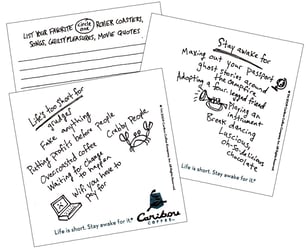 LIST YOUR FAVORITE (circle one) ROLLER COASTERS,
SONGS, GUILTY PLEASURES, MOVIE QUOTES.
Life's too short for
grudges
Fake anything
Putting profits before people
Crabby People
Overroasted coffee
Waiting for change
to happen
Wifi you have to
pay for
Life is short. Stay awake for it.
Caribou
COFFEE
Stay awake for
Making out your passport
ghost stories around
the campfire
Adopting a four legged friend
Playing an
instrument
Break dancing
Luscious,
oh-so-delicious
chocolate
Life is short. Stay awake for it.